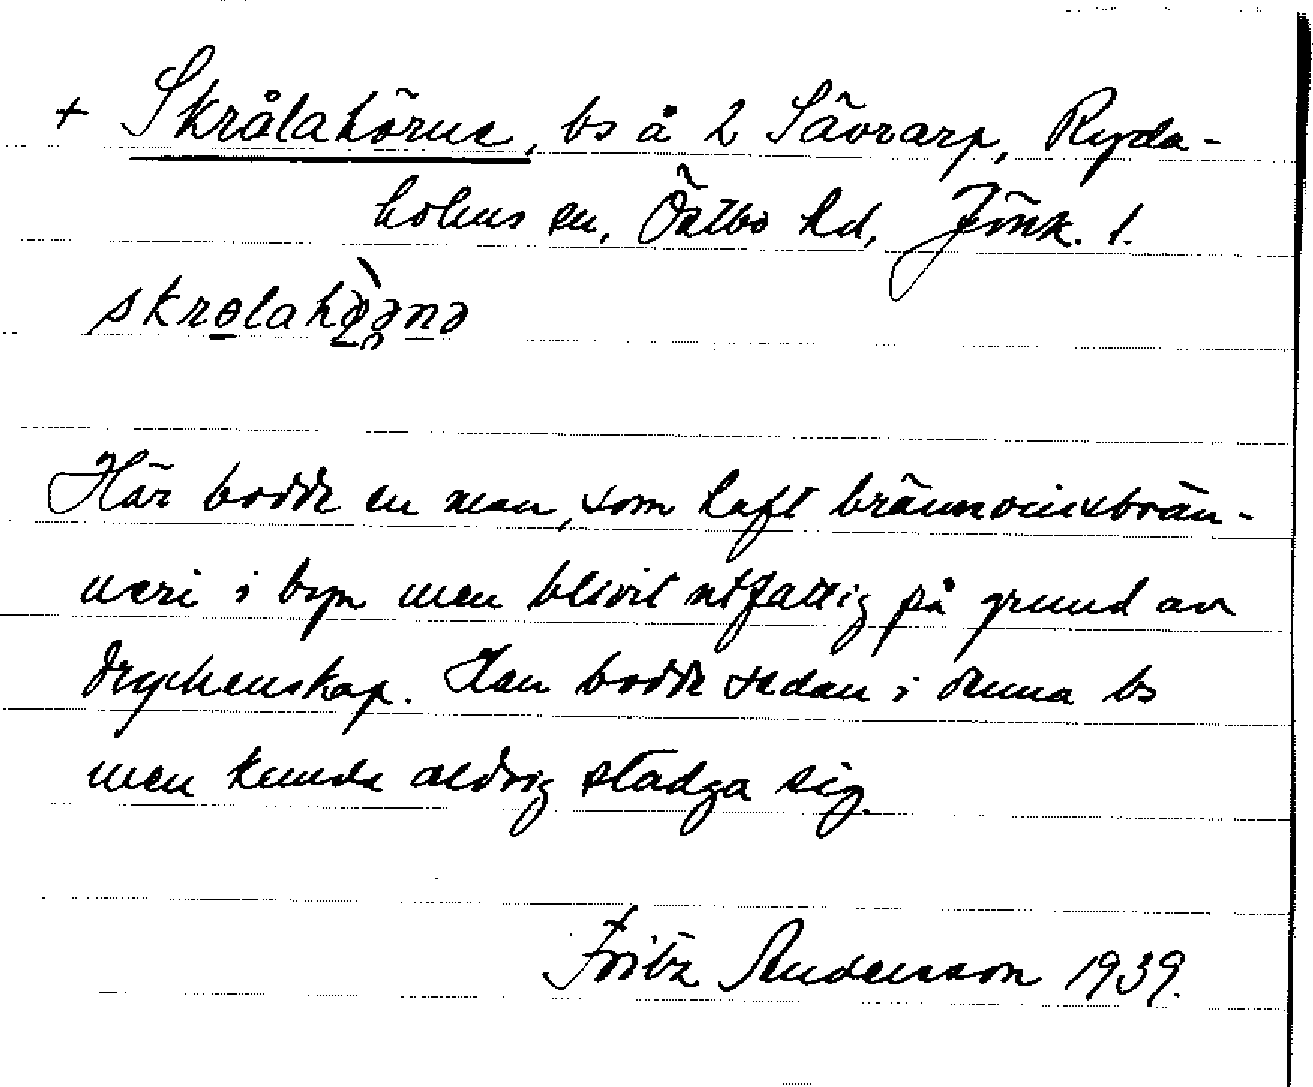 + Skrålahörne, bs å 2 Sävrarp, Ryda-
holms sn, Östbo hd, Jönk. l.
Här bodde en man, som haft brännvinsbrän-
neri i byn men blivit utfattig på grund av
dryckenskap. Han bodde sedan i denna bs
men kunde aldrig stadga sig.
Fritz Andersson 1939.